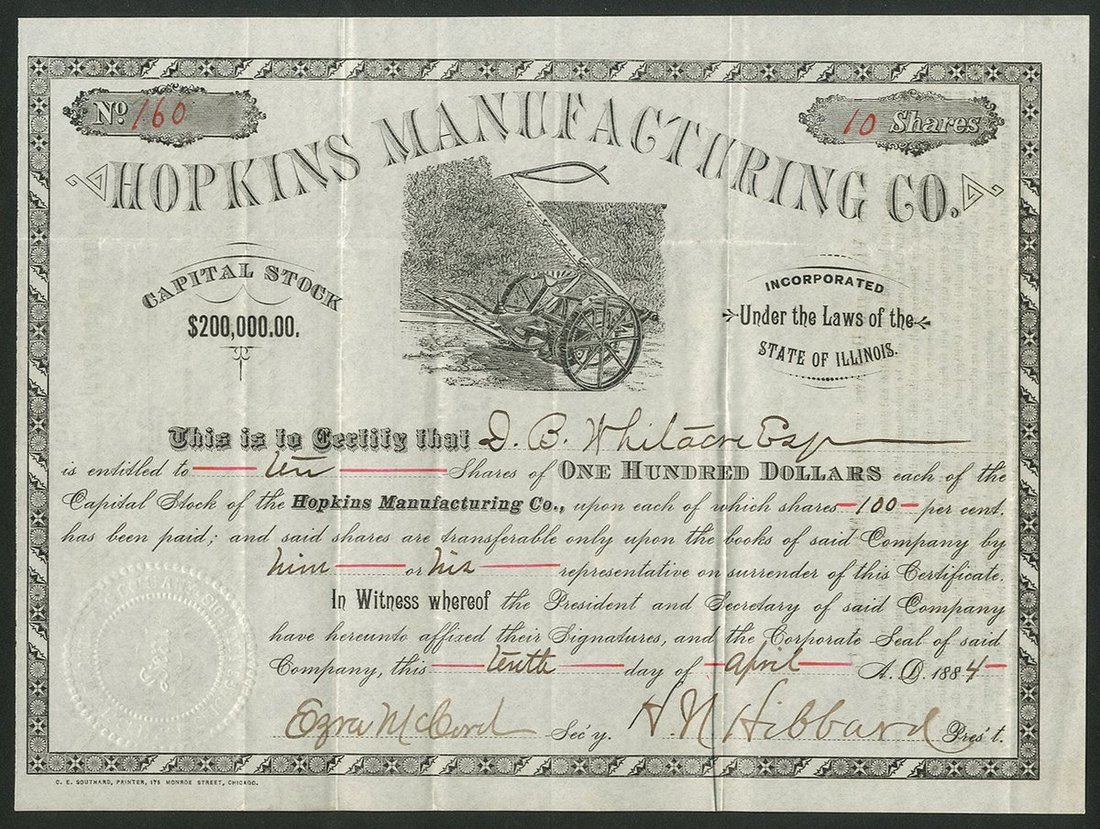 No. 160
10 Shares
HOPKINS MANUFACTURING CO.
CAPITAL STOCK
$200,000.00.
INCORPORATED
Under the Laws of the
STATE OF ILLINOIS.
This is to Certify that D. B. Whitacre Esq
is entitled to ten Shares of ONE HUNDRED DOLLARS each of the
Capital Stock of the Hopkins Manufacturing Co., upon each of which shares 100 per cent.
has been paid; and said shares are transferable only upon the books of said Company by
him or his representative on surrender of this Certificate.
In Witness whereof the President and Secretary of said Company
have hereunto affixed their Signatures, and the Corporate Seal of said
Company, this tenth day of April A.D. 1884
Ezra McCord Sec'y. H N Hibbard Pres't.
C. E. SOUTHARD, PRINTER, 175 MONROE STREET, CHICAGO.